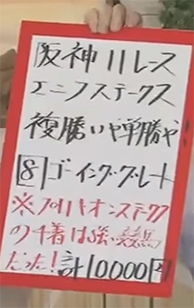 阪神11レース
エニフステークス
複勝いや単勝や
[8]ゴーイング・グレート
※プロキオンステークス
の4着は強い競馬
だった!計10,000円